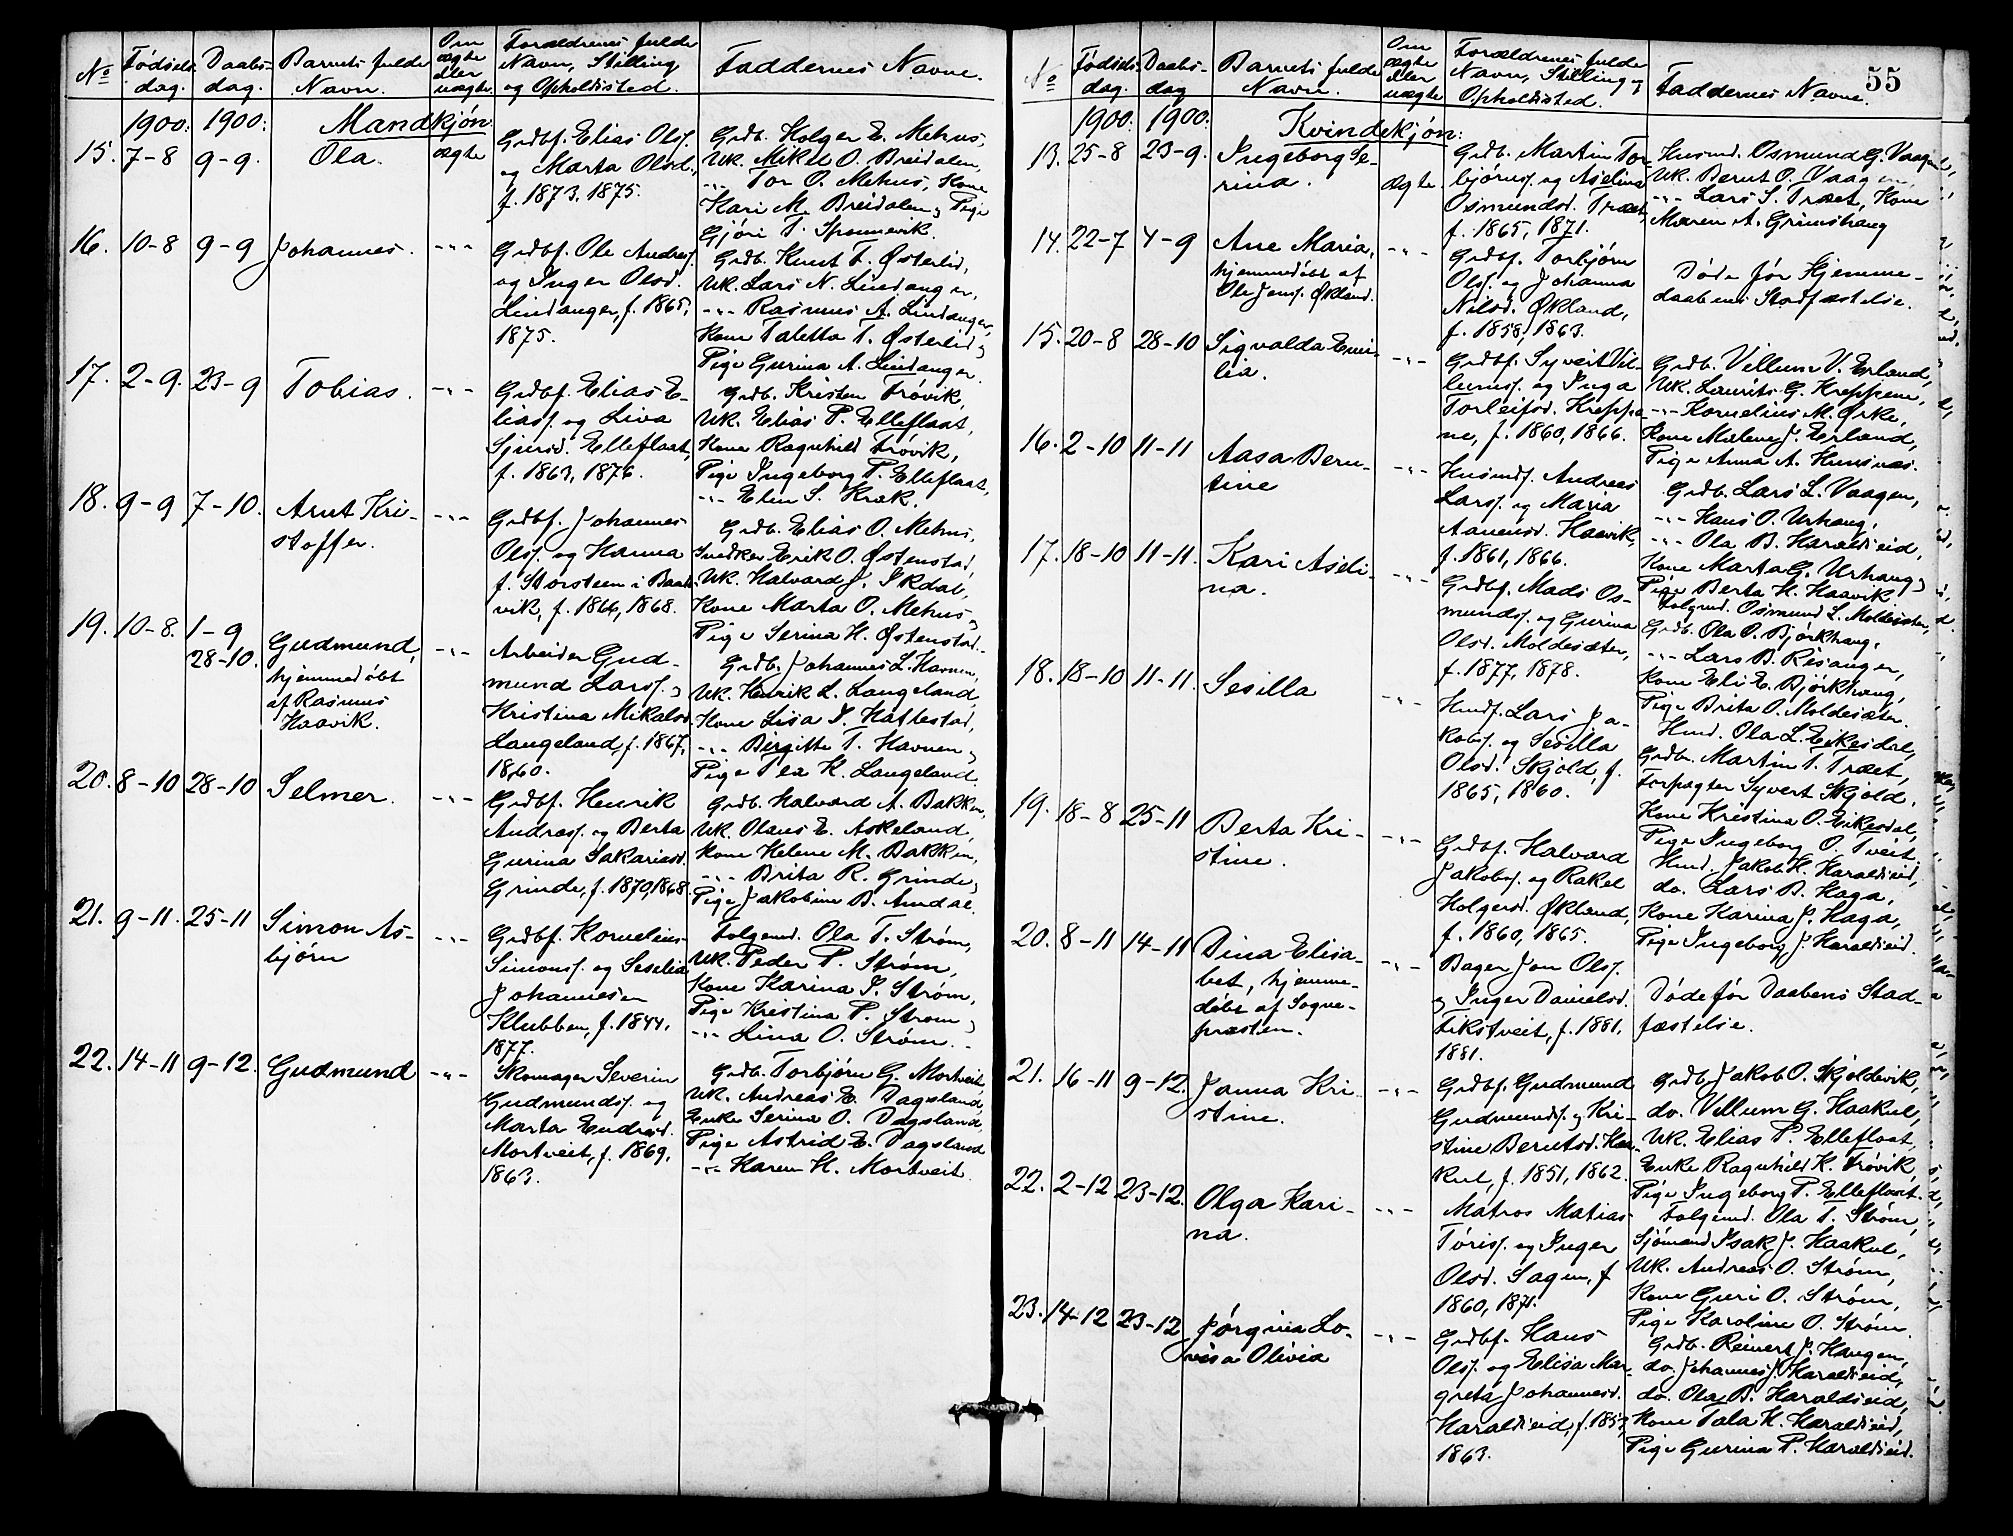 No
Fødsels-
dag.
Daabs-
dag.
Barnets fulde
Navn.
Om
ægte
eller
uægte
Forældrenes fulde
Navn, Stilling
og Opholdssted.
Faddernes Navne.
1900: 1900:
Mandkjøn
15. 7-8 9-9. Ola. ægte
Grdbf. Elias Olsf.
og Marta Olsd.,
f. 1873, 1875.
Grdb. Holger E. Mehus,
Uk. Mikel O. Breidalen,
-"- Tor O. Mehus, Kone
Kari M. Breidalen, Pige
Gjøri T. Sponnevik.
16. 10-8 9-9 Johannes. -"-
Grdbf. Ole Andersf.
og Inger Olsd.
Lindanger, f. 1865,
1875.
Grdb. Knut T. Østerlid,
Uk. Lars N. Lindanger,
-"- Rasmus A. Lindanger,
Kone Taletta T. Østerlid,
Pige Gurina A. Lindanger.
17. 2-9. 23-9 Tobias. -"-
Grdbf. Elias E-
liasf. og Liva
Sjursd. Elleflaat,
f. 1863, 1876.
Grdb. Kristen Trøvik,
Uk. Elias P. Elleflaat,
Kone Ragnhild Trøvik,
Pige Ingeborg P. Elleflaat,
-"- Elen S. Krak.
18. 9-9 7-10. Arnt Kri-
stoffer. -"-
Grdbf. Johannes
Olsf. og Hanna
f. Storsteen i Baads-
vik, f. 1866, 1868.
Grdb. Elias O. Mehus,
Snedker Erik O. Østenstad,
Uk. Halvard J. Ikdal,
Kone Marta O. Mehus,
Pige Serina H. Østenstad.
19. 10-8. 1-9
28-10. Gudmund,
hjemmedøbt
af Rasmus
Haavik. -"-
Arbeider Gud-
mund Larsf. og
Kristina Mikalsd.
Langeland, f. 1867,
1860.
Grdb. Johannes L. Havnen,
Uk. Henrik L. Langeland,
Kone Lisa I. Hatlestad,
-"- Birgitte T. Havnen,
Pige Tea K. Langeland.
20. 8-10 28-10 Selmer. -"-
Grdbf. Henrik
Andrasf. og Berta
Gurina Sakariasd.
Grinde, f. 1870, 1868.
Grdb. Halvard A. Bakken,
Uk. Olaus E. Askeland,
Kone Helene M. Bakken,
-"- Brita R. Grinde,
Pige Jakobine B. Amdal.
21. 9-11. 25-11 Simon As-
bjørn -"-
Grdbf. Kornelius
Simonsf. og Seselia
Johannesen
Klubben, f. 1844,
1877.
Folgemd. Ola T. Strøm,
Uk. Peder P. Strøm,
Kone Karina S. Strøm,
Pige Kristina P. Strøm,
-"- Lina O. Strøm.
22. 14-11 9-12. Gudmund -"-
Skomager Severin
Gudmundsf. og
Marta Endresd.
Mortveit, f. 1869,
1863.
Grdb. Torbjørn G. Mortveit,
Uk. Andreas E. Dagsland,
Enke Serina O. Dagsland,
Pige Astrid E. Dagsland
-"- Karen H. Mortveit.
55
No
Fødsels-
dag.
Daabs-
dag
Barnets fulde
Navn.
Om
ægte
eller
uægte
Forældrenes fulde
Navn, Stilling og
Opholdssted.
Faddernes Navne.
1900: 1900:
Kvindekjøn:
13. 25-8 23-9. Ingeborg Se-
rina. ægte.
Grdb. Martin Tor-
bjørnsf. og Aselina
Osmundsd. Træet,
f. 1865, 1871.
Husmd. Osmund G. Vaagen,
Uk. Bernt O. Vaagen,
-"- Lars S. Træet, Kone
Maren A. Grimshaug
14. 22-7 4-9 Ane Maria,
hjemmedøbt af
Ole Jensf. Økland. -"-
Grdbf. Torbjørn
Olsf. og Johanna
Nilsd. Økland,
f. 1858, 1863.
Døde før Hjemme-
daabens Stadfæstelse.
15. 20-8 28-10 Sigvalda Emi-
lia. -"-
Grdbf. Syvert Vil-
lumsf. og Inga
Torleifsd. Kreppe-
ne, f. 1860, 1866.
Grdb. Villum V. Erland,
Uk. Laurits G. Kreppene,
-"- Kornelius M. Ørke,
Kone Malene J. Erland,
Pige Anna A. Hunsnæs.
16. 2-10 11-11 Aasa Bern-
tine -"-
Husmdf. Andreas
Larsf. og Maria
Aanensd. Haavik,
f. 1861, 1866.
Grdb. Lars L. Vaagen,
-"- Hans O. Urhaug,
-"- Ola B. Haraldseid,
Kone Marta G. Urhaug,
Pige Berta H. Haavik
17. 18-10 11-11. Kari Aseli-
na. -"-
Grdbf. Mads Os-
mundsf. og Gurina
Olsd. Moldesæter,
f. 1877, 1878.
Folgmd. Osmund L. Moldesæter,
Grdb. Ola O. Bjørkhaug,
-"- Lars B. Risanger,
Kone Eli E. Bjørkhaug,
Pige Brita O. Moldesæter.
18. 18-10 11-11. Sesilla -"-
Husdf. Lars Ja-
kobsf. og Sesilla
Olsd. Skjold, f.
1865, 1860.
Husd. Ola L. Eikesdal,
Grdbr. Martin T. Træet,
Forpagter Syvert Skjold,
Kone Kristina O. Eikesdal,
Pige Ingeborg O. Tveit.
19. 18-8 25-11 Berta Kri-
stine. -"-
Grdbf. Halvard
Jakobsf. og Rakel
Holgersd. Økland,
f. 1860, 1865.
Husd. Jakob H. Haraldseid,
do. Lars B. Haga,
Kone Karina J. Haga,
Pige Ingeborg J. Haraldseid.
20. 8-11 14-11 Dina Elisa-
bet, hjemme-
døbt af Sogne-
præsten. -"-
Bager Jon Olsf.
og Inger Danielsd.
Fikstveit, f. 1881,
1881.
Døde før Daabens Stad-
fæstelse.
21. 16-11 9-12. Janna Kri-
stine. -"-
Grdbf. Gudmund
Gudmundsf. og Kri-
stine Berntsd. Haa-
kul, f. 1851, 1862.
Grdb. Jakob O. Skjoldevik,
do. Villum G. Haakul,
Uk. Elias P. Elleflaat,
Enke Ragnhild K. Trøvik,
Pige Ingeborg P. Elleflaat.
22. 2-12 23-12. Olga Kari-
na. -"-
Matros Matias
Torisf. og Inger
Olsd. Sagen, f
1860, 1871.
Folgemd. Ola T. Strøm,
Sjømand Isak J. Haakul,
Uk. Andreas O. Strøm,
Kone Guri O. Strøm,
Pige Karoline O. Strøm.
23. 14-12 23-12 Jørgina Lo-
visa Olivia -"-
Grdbf. Hans
Olsf. og Elisa Mar-
greta Johannesd.
Haraldseid, f. 1853,
1863.
Grdb. Reinert J. Haugen,
do. Johannes J. Haraldseid,
do. Ola B. Haraldseid,
Kone Tala H. Haraldseid,
Pige Gurina P. Haraldseid.